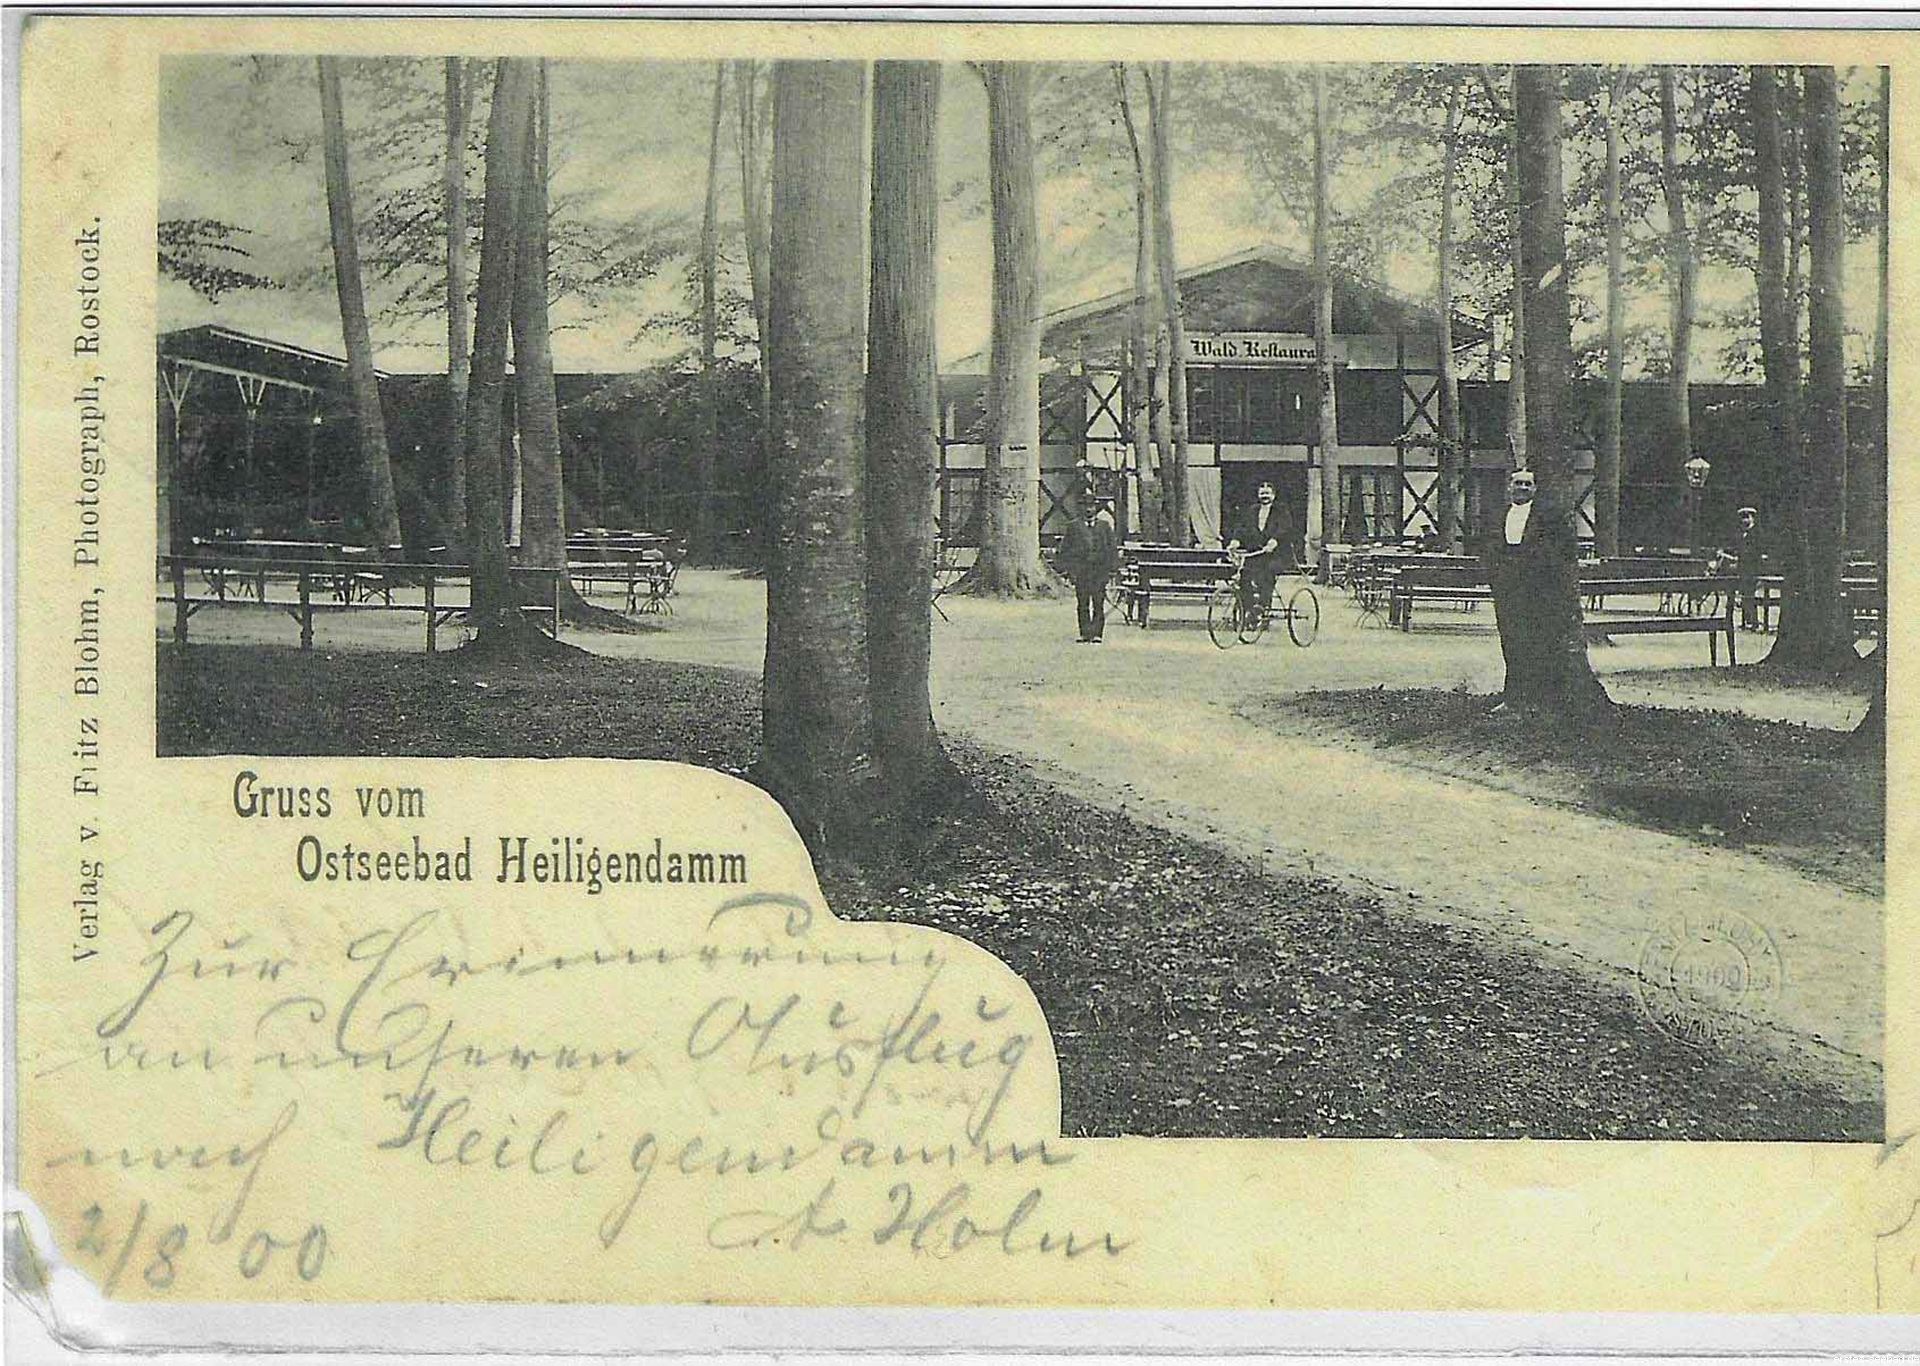 Verlag v. Fritz Blohm, Photograph, Rostock.
Wald Restaura
Gruss vom
Ostseebad Heiligendamm
Zur Erinnerung
an unseren Ausflug
nach Heiligendamm
A Holm
2/8 00
1900